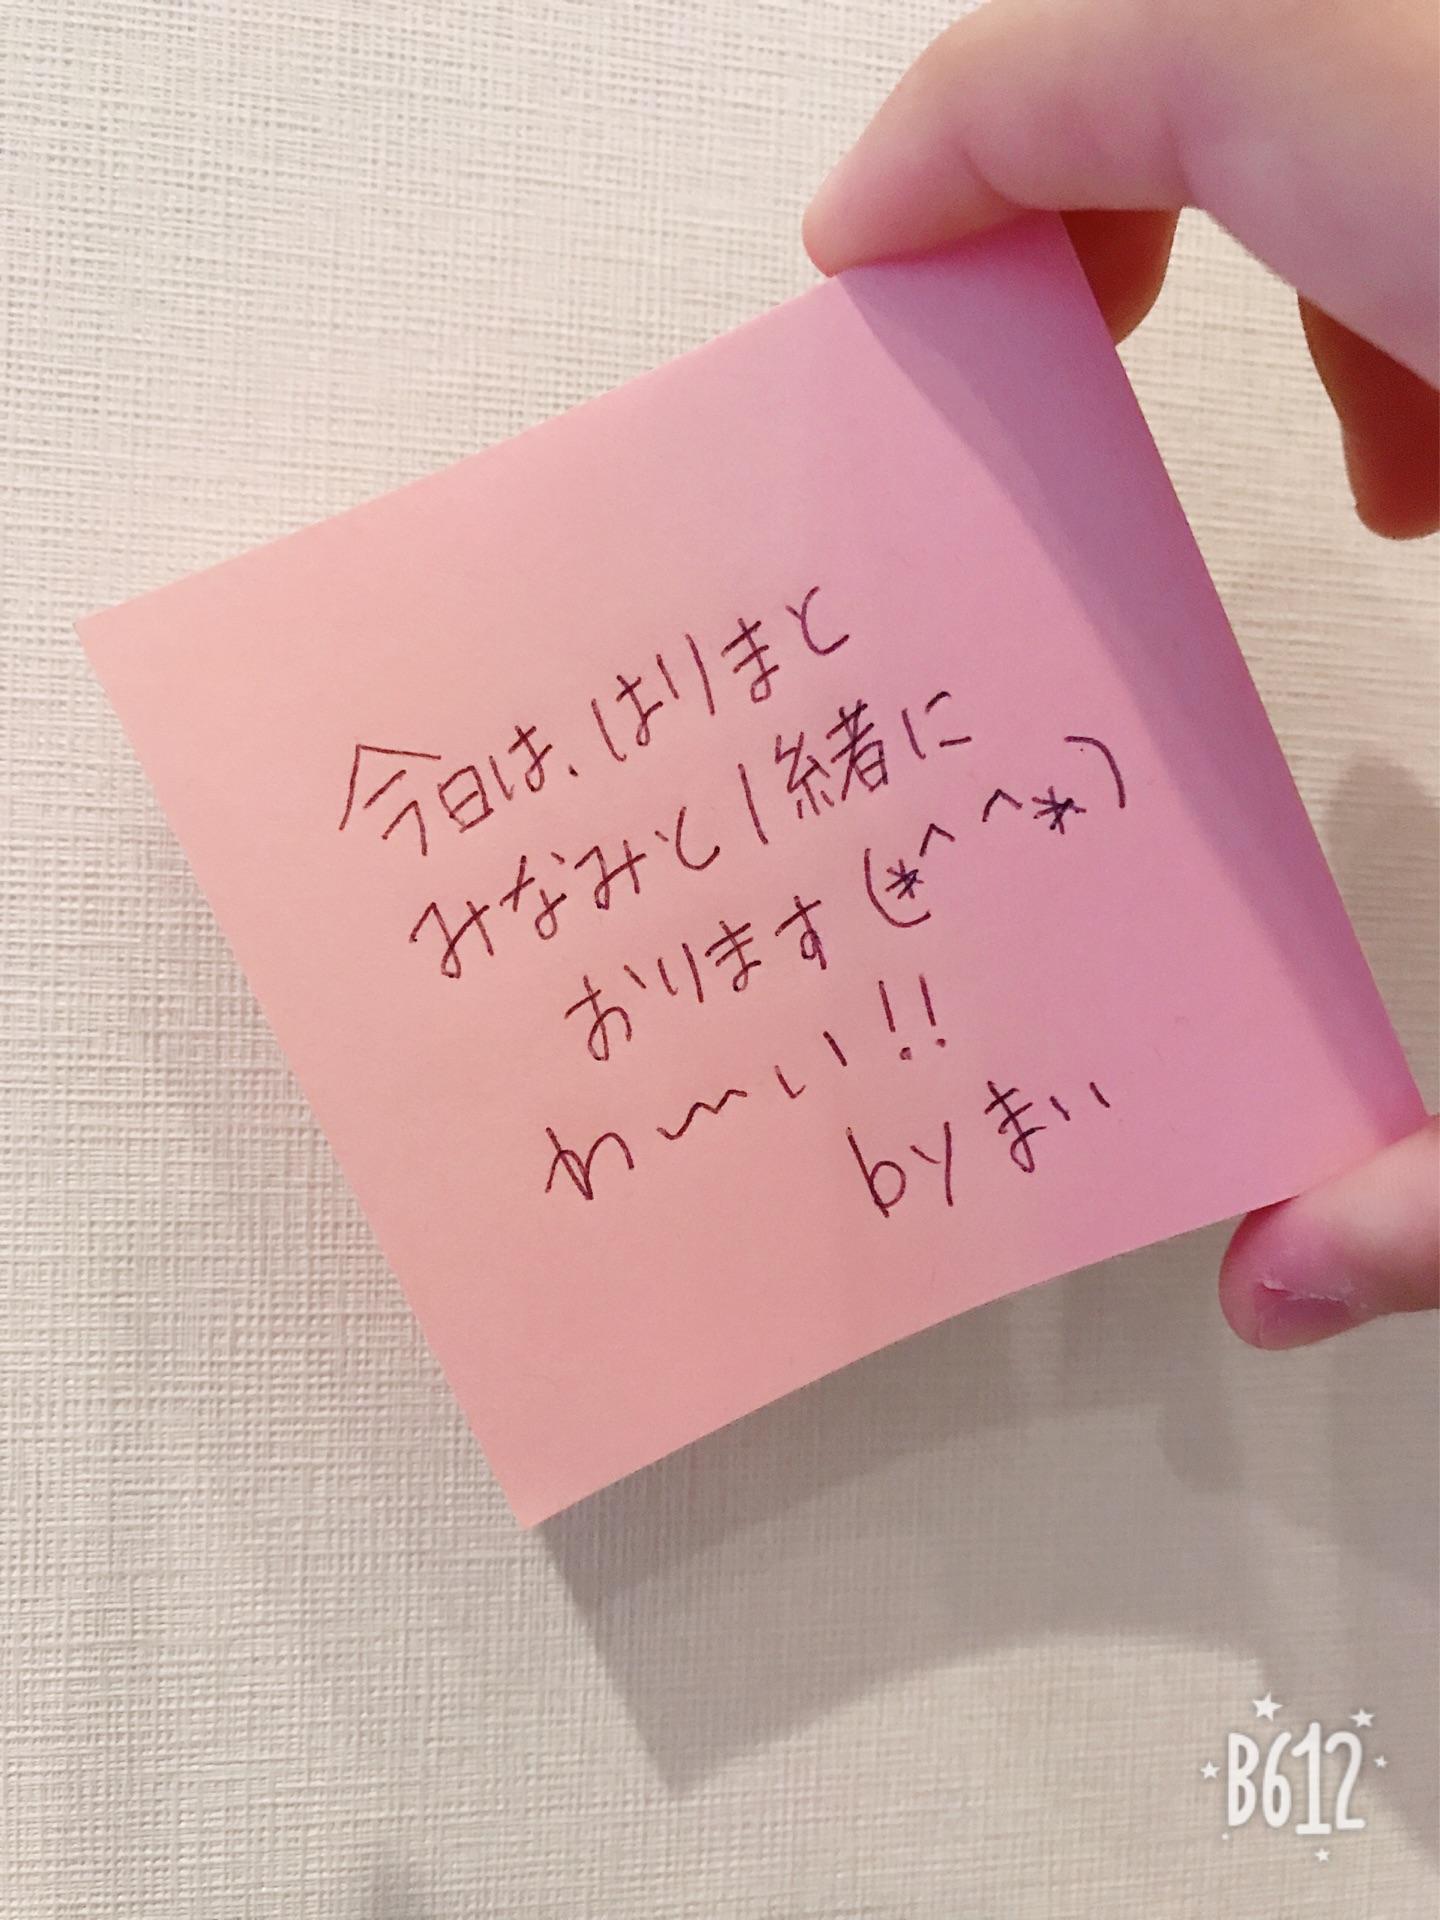 今日は、はりまと
みなみと1緒に
おります(*^^*)
わ〜い!!
byまい
B612